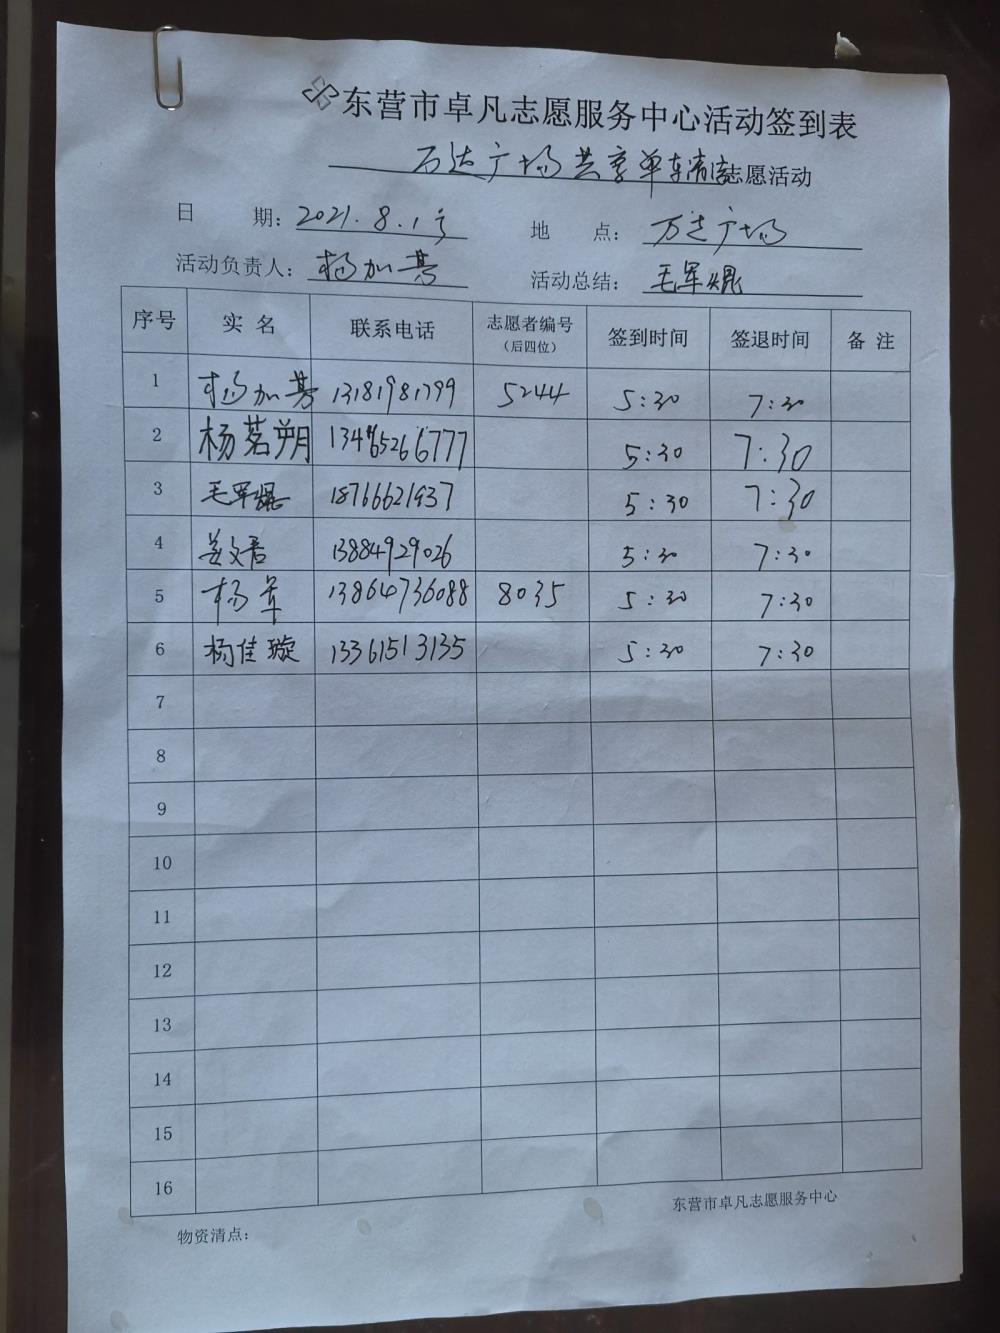 东营市卓凡志愿服务中心活动签到表
万达广场共享单车清洁志愿活动
日 期：2021.8.1号 地 点：万达广场
活动负责人：杨加营 活动总结：毛军焜
序号 实 名 联系电话 志愿者编号（后四位） 签到时间 签退时间 备 注
1 杨加营 13181981799 5244 5:30 7:30
2 杨茗朔 13465266777 5:30 7:30
3 毛军焜 18766621937 5:30 7:30
4 姜文君 13884929026 5:30 7:30
5 杨军 13864736088 8035 5:30 7:30
6 杨佳璇 13361513135 5:30 7:30
7
8
9
10
11
12
13
14
15
16
东营市卓凡志愿服务中心
物资清点：